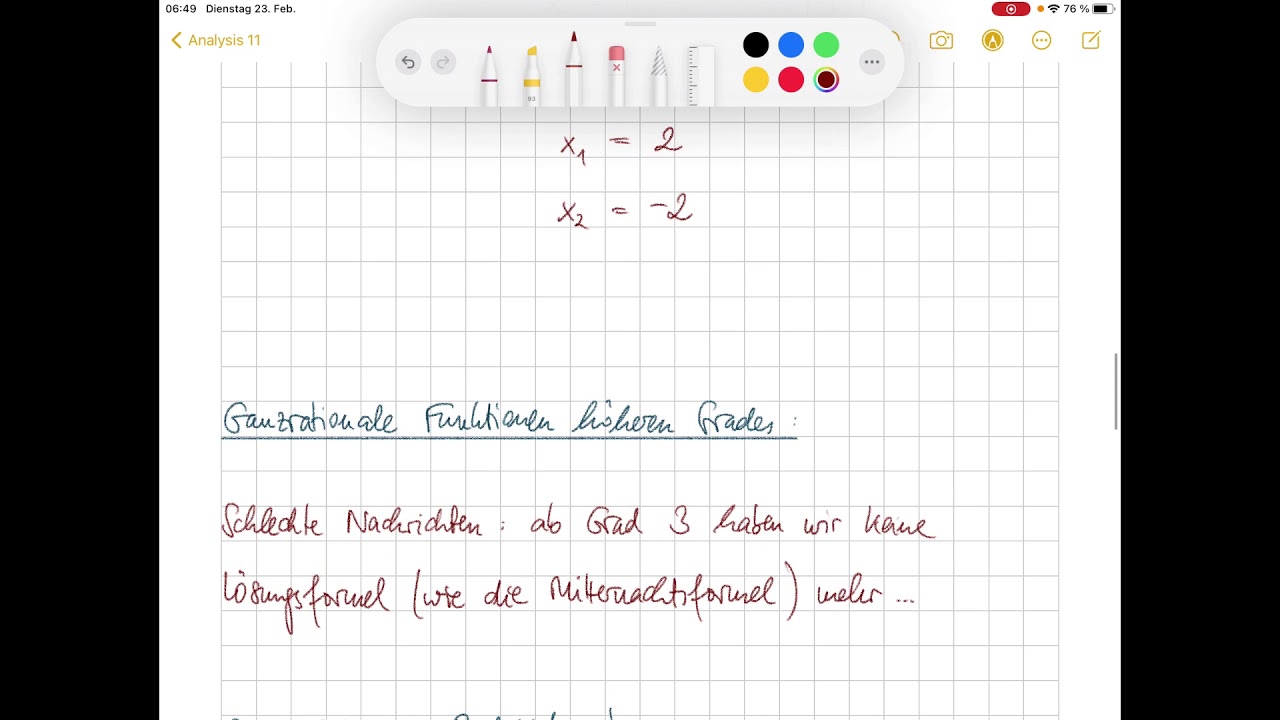 06:49 Dienstag 23. Feb.
76 %
Analysis 11
93
x₁ = 2
x₂ = -2
Ganzrationale Funktionen höheren Grades :
Schlechte Nachrichten : ab Grad 3 haben wir keine
Lösungsformel (wie die Mitternachtsformel) mehr ...